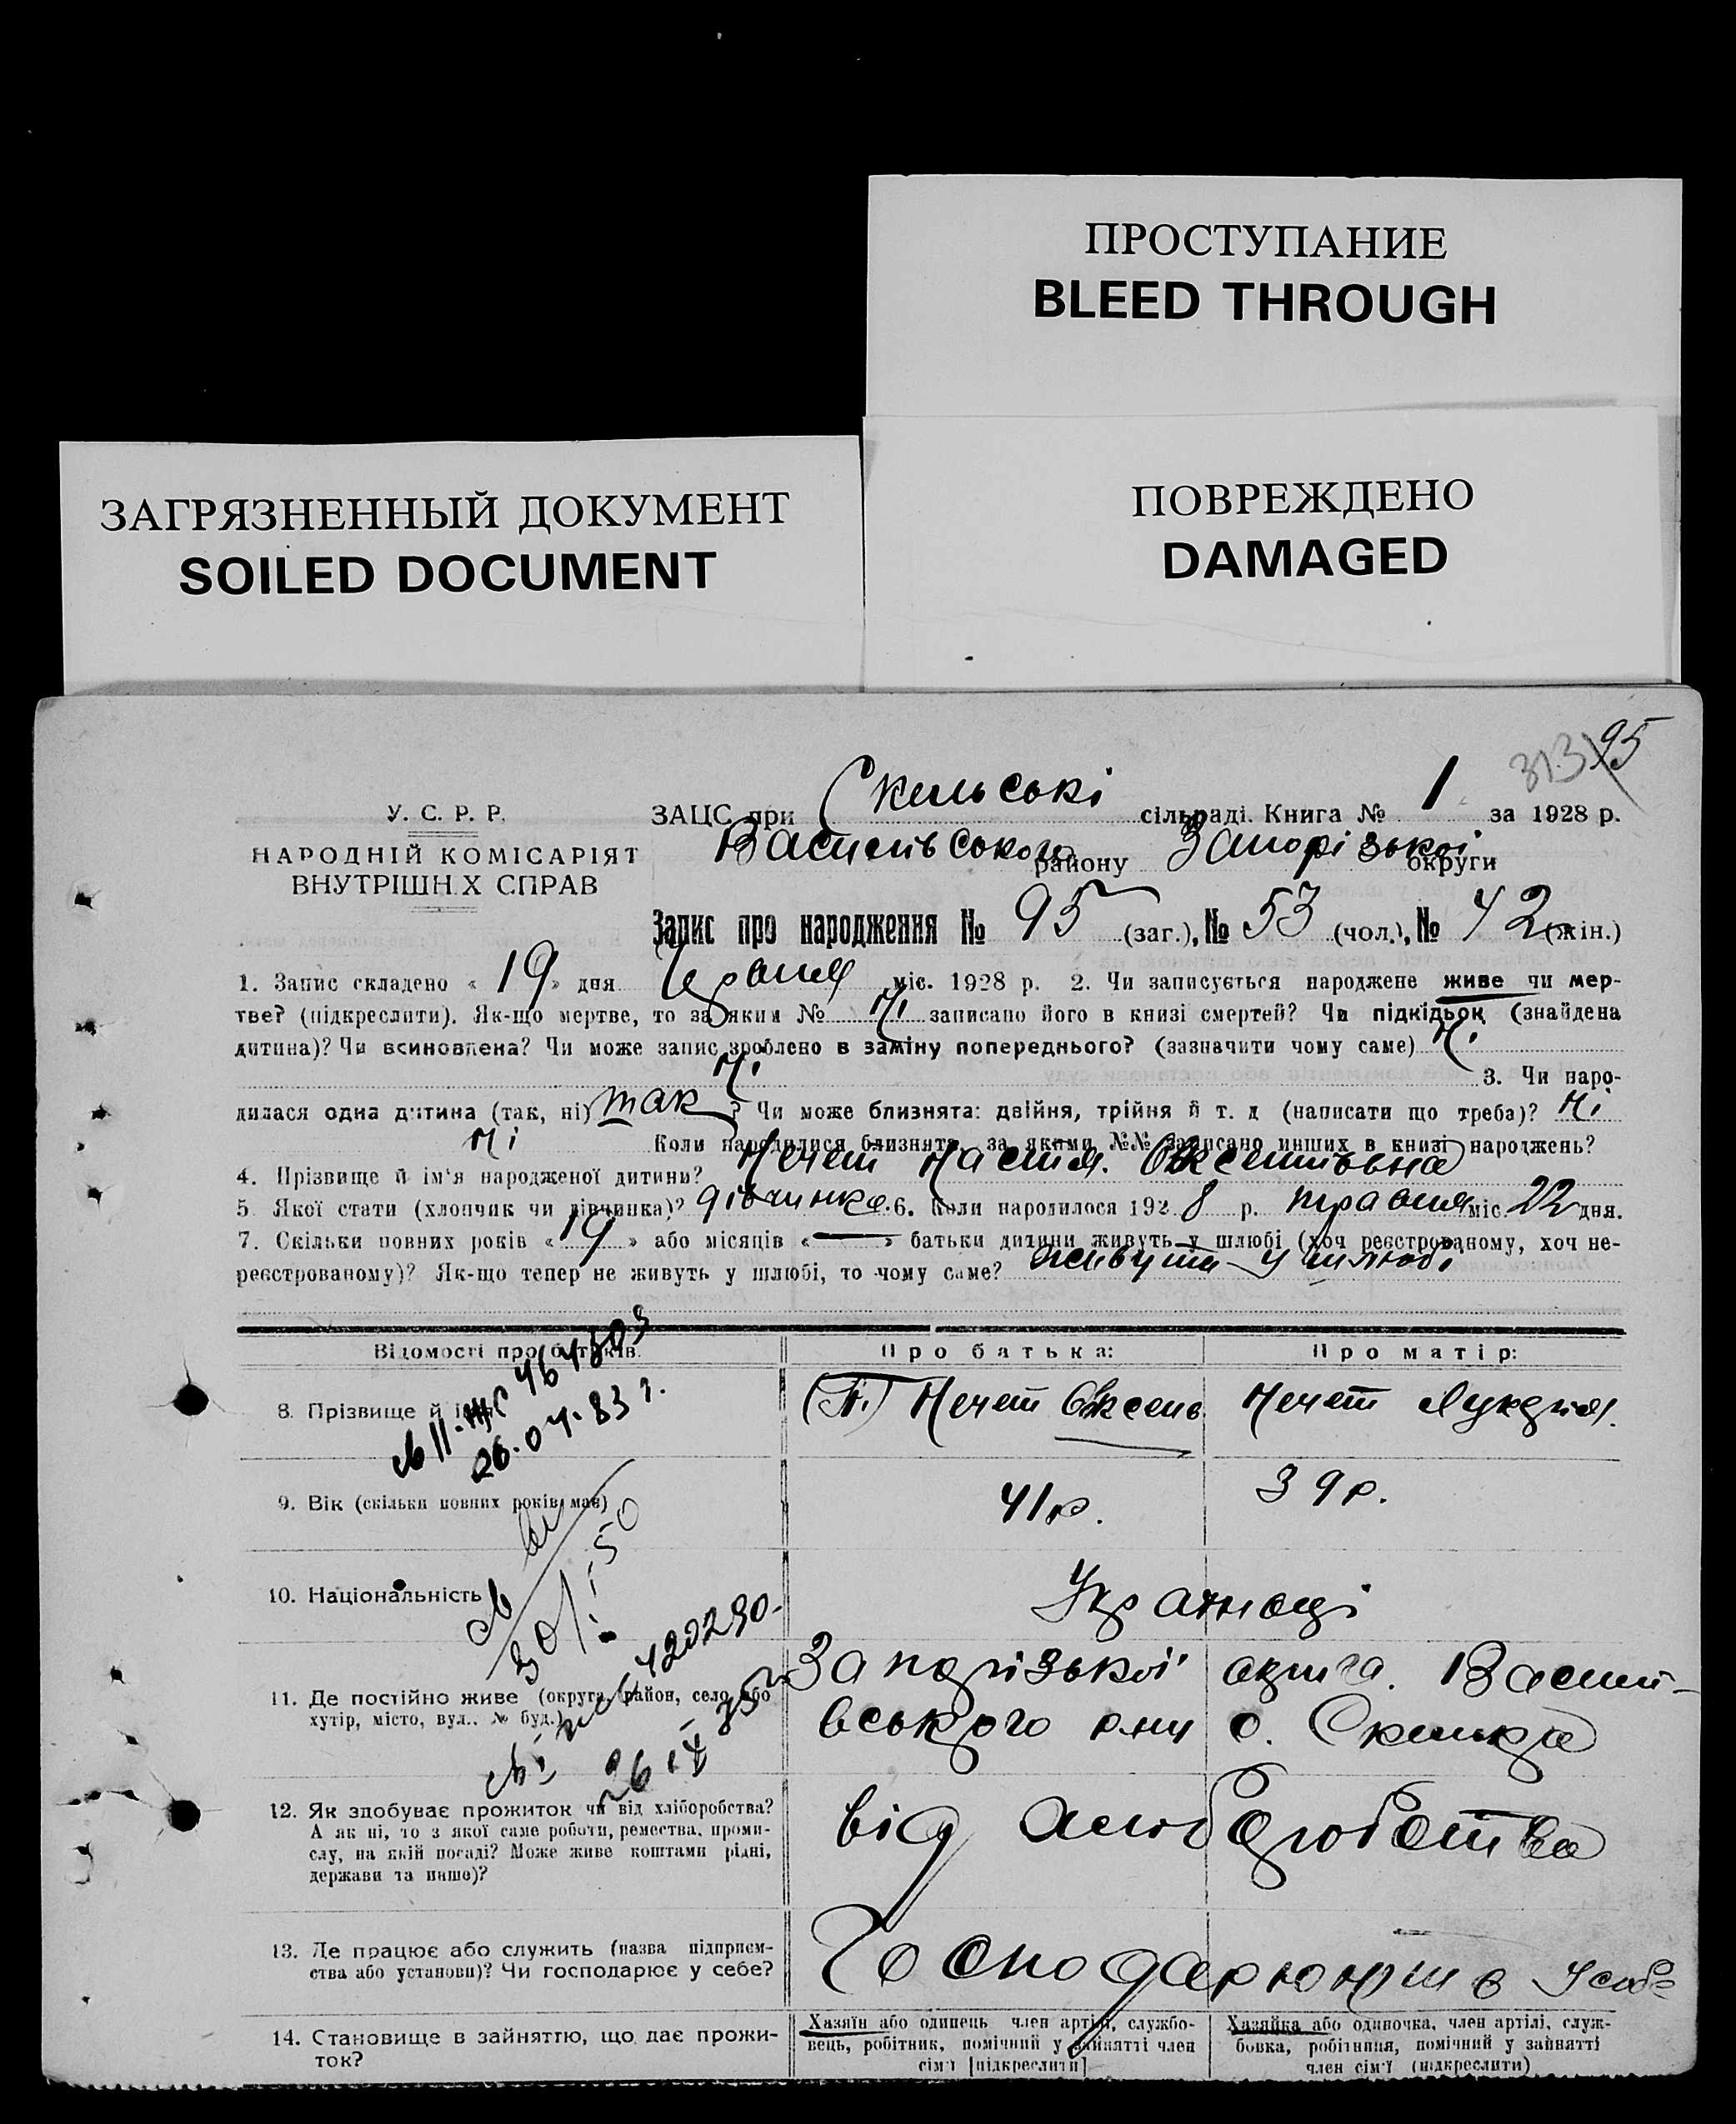 ПРОСТУПАНИЕ
BLEED THROUGH
ЗАГРЯЗНЕННЫЙ ДОКУМЕНТ
SOILED DOCUMENT
ПОВРЕЖДЕНО
DAMAGED
313 95
У. С. Р. Р.
НАРОДНІЙ КОМІСАРІЯТ
ВНУТРІШН.Х СПРАВ
ЗАЦС при Скельські сільраді. Книга № 1 за 1928 р.
Василівського району Запорізької округи
Запис про народження № 95 (заг.), № 53 (чол.), № 42 (жін.)
1. Запис складено « 19 » дня червня міс. 1928 р. 2. Чи записується народжене живе чи мер-
тве? (підкреслити). Як-що мертве, то за яким № ні записано його в книзі смертей? Чи підкідьок (знайдена
дитина)? Чи всиновлена? Чи може запис зроблено в заміну попереднього? (зазначити чому саме) ні
ні 3. Чи наро-
дилася одна дитина (так, ні) так ? Чи може близнята: двійня, трійня й т. д (написати що треба)? ні
ні Коли народилися близнята, за якими №№ записано инших в книзі народжень?
4. Прізвище й ім'я народженої дитини? Нечет Настя. Овксентьєвна
5. Якої стати (хлопчик чи дівчинка)? дівчинка. 6. Коли народилося 192 8 р. травня міс. 22 дня.
7. Скільки повних років « 19 » або місяців « — » батьки дитини живуть у шлюбі (хоч реєстрованому, хоч не-
реєстрованому)? Як-що тепер не живуть у шлюбі, то чому саме? живуть у шлюбі
Відомості про батьків. Про батька: Про матір:
8. Прізвище й ім'я Нечет Овксень Нечет Лукдия.
26.04.83 г.
9. Вік (скільки повних років має) 41 р. 39 р.
10. Національність Українці
11. Де постійно живе (округа, район, село або
хутір, місто, вул.. № буд.)
Запорізької округа. Васил-
вського р-ну с. Скельки
12. Як здобуває прожиток чи від хліборобства?
А як ні, то з якої саме роботи, ремества, проми-
слу, на якій посаді? Може живе коштами рідні,
держави та инше)?
від хліборобства
13. Де працює або служить (назва підприєм-
ства або установи)? Чи господарює у себе?
Господарюють в
14. Становище в зайняттю, що дає прожи-
ток?
Хазяїн або одинець член артілі, службо-
вець, робітник, помічний у зайнятті член
сім'ї [підкреслити]
Хазяйка або одиночка, член артілі, служ-
бовка, робітниця, помічний у зайнятті
член сім'ї (підкреслити)